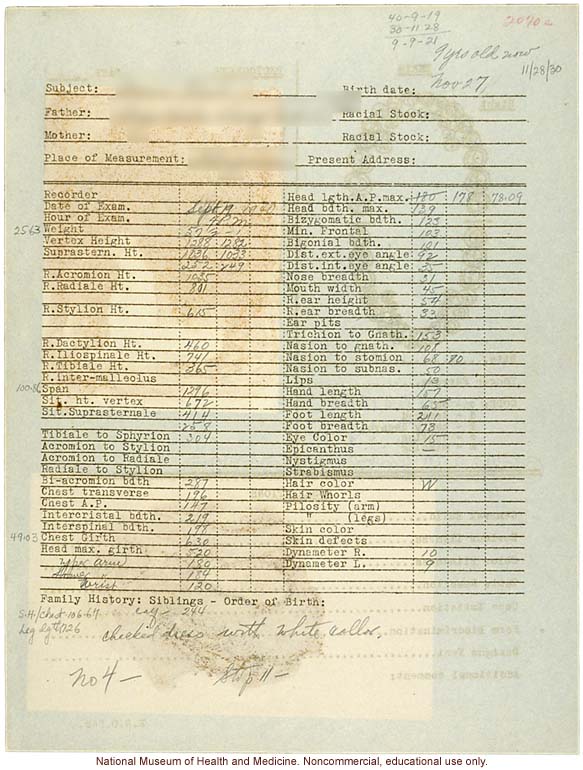 40-9-19
30-11-28
9-9-21
2070a
9 yrs old now
Nov 27
11/28/30
Subject:
Birth date:
Father:
Racial Stock:
Mother:
Racial Stock:
Place of Measurement:
Present Address:
Recorder
Date of Exam. Sept 19
Hour of Exam.
2563 Weight 57
Vertex Height 1288 1282
Suprastern. Ht. 1036 1033
252 249
R.Acromion Ht. 1035
R.Radiale Ht. 801
R.Stylion Ht. 615
R.Dactylion Ht. 460
R.Iliospinale Ht. 741
R.Tibiale Ht. 365
R.Inter-malleolus
100.86 Span 1296
Sit. ht. vertex 672
Sit.Suprasternale 414
258
Tibiale to Sphyrion 304
Acromion to Stylion
Acromion to Radiale
Radiale to Stylion
Bi-acromion bdth 287
Chest transverse 196
Chest A.P. 147
Intercristal bdth. 219
Interspinal bdth. 198
49.03 Chest Girth 630
Head max. girth 520
upper arm 180
184
wrist 120
Head lgth.A.P.max. 180 178 78.09
Head bdth. max. 139
Bizygomatic bdth. 123
Min. Frontal 103
Bigonial bdth. 101
Dist.ext.eye angle 92
Dist.int.eye angle
Nose breadth 31
Mouth width 45
R.ear height 54
R.ear breadth 33
Ear pits
Trichion to Gnath. 153
Nasion to gnath. 109
Nasion to stomion 68 70
Nasion to subnas. 50
Lips 13
Hand length 157
Hand breadth 65
Foot length 211
Foot breadth 78
Eye Color 15
Epicanthus —
Nystigmus
Strabismus
Hair color W
Hair Whorls
Pilosity (arm)
" (legs)
Skin color
Skin defects
Dynameter R. 10
Dynameter L. 9
Family History: Siblings - Order of Birth:
S.H./Chest 106.67
calf - 244
Leg lgth 726
checked dress with white collar.
no 4 —
Step 11 —
National Museum of Health and Medicine. Noncommercial, educational use only.